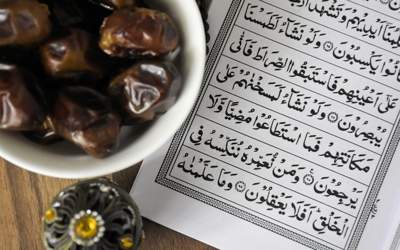 أَيْدِيهِمْ وَتَشْهَدُ
كَانُوا يَكْسِبُونَ ۝ وَلَوْ نَشَآءُ لَطَمَسْنَا
عَلَىٰٓ أَعْيُنِهِمْ فَاسْتَبَقُوا الصِّرَاطَ فَأَنَّىٰ
يُبْصِرُونَ ۝ وَلَوْ نَشَآءُ لَمَسَخْنٰهُمْ عَلَىٰ
مَكَانَتِهِمْ فَمَا اسْتَطَاعُوا مُضِيًّا وَلَا
يَرْجِعُونَ ۝ وَمَنْ نُعَمِّرْهُ نُنَكِّسْهُ فِي
الْخَلْقِ أَفَلَا يَعْقِلُونَ ۝ وَمَا عَلَّمْنٰهُ